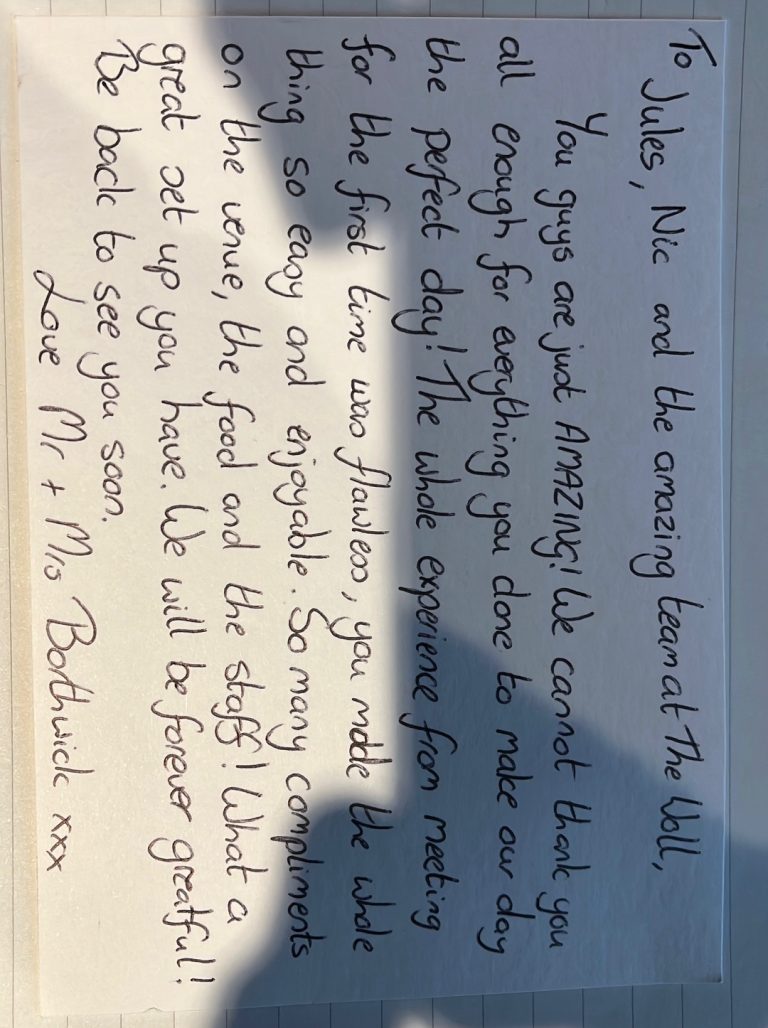 To Jules, Nic and the amazing team at The Woll,
You guys are just AMAZING! We cannot thank you
all enough for everything you done to make our day
the perfect day! The whole experience from meeting
for the first time was flawless, you made the whole
thing so easy and enjoyable. So many compliments
on the venue, the food and the staff! What a
great set up you have. We will be forever greatful!
Be back to see you soon.
Love Mr + Mrs Borthwick xxx